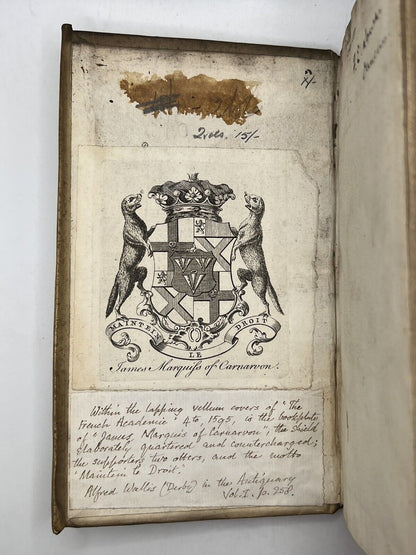 2 vols. 15/-
MAINTEIN LE DROIT
James Marquiss of Carnarvon.
Within the lapping vellum covers of "The
French Academie" 4to, 1595, is the bookplate
of "James, Marquis of Carnarvon", the shield
elaborately quartered and countercharged;
the supporters two otters, and the motto
"Maintein le Droit."
Alfred Wallis (Derby) in the Antiquary
Vol. I. p. 258.